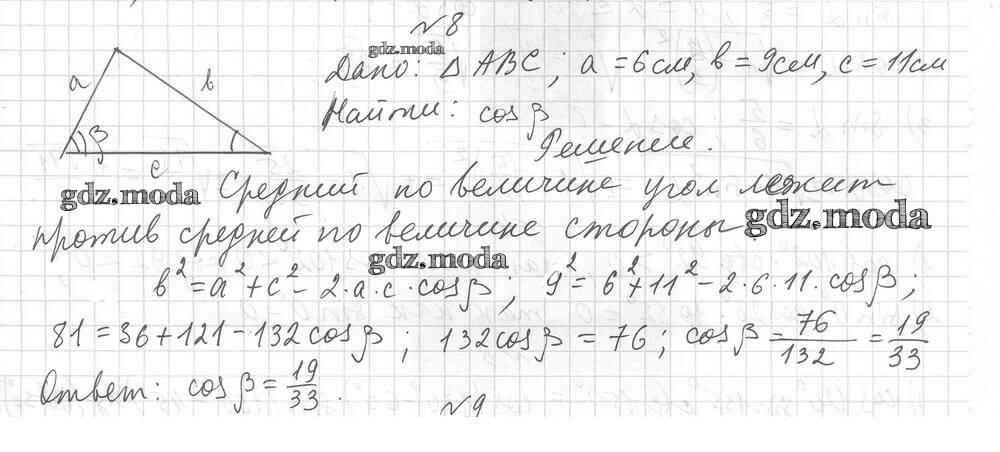 №8
gdz.moda
Дано: △ ABC; a = 6 см, b = 9 см, c = 11 см
a b
Найти: cos β
β
Решение.
c
gdz.moda Средний по величине угол лежит
против средней по величине стороны. gdz.moda
gdz.moda
b² = a² + c² - 2·a·c·cos β; 9² = 6² + 11² - 2·6·11·cos β;
81 = 36 + 121 - 132 cos β; 132 cos β = 76; cos β = 76/132 = 19/33
Ответ: cos β = 19/33.
№9